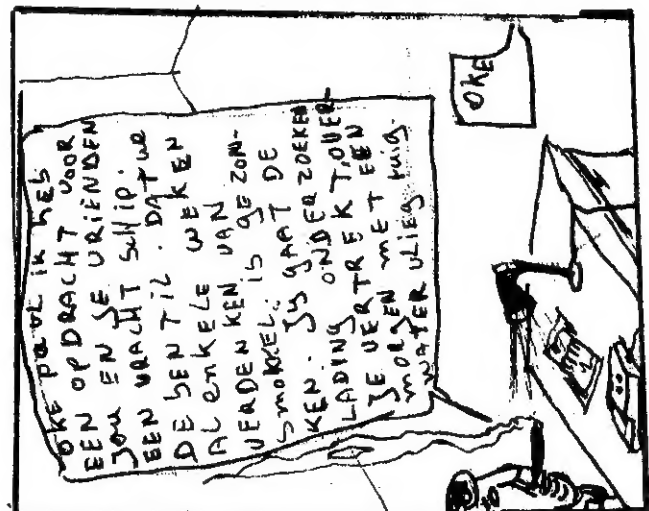 OKE PAUL IK HEB
EEN OPDRACHT VOOR
JOU EN JE VRIENDEN
EEN VRACHT SCHIP.
DE BEN TIL. DAT WE
AL ENKELE WEKEN
VERDENKEN VAN
SMOKKEL. IS GEZON-
KEN. JY GAAT DE
LADING ONDERZOEKEN
JE VERTREKT OVER-
MORGEN MET EEN
WATER VLIEG tuig.
OKE